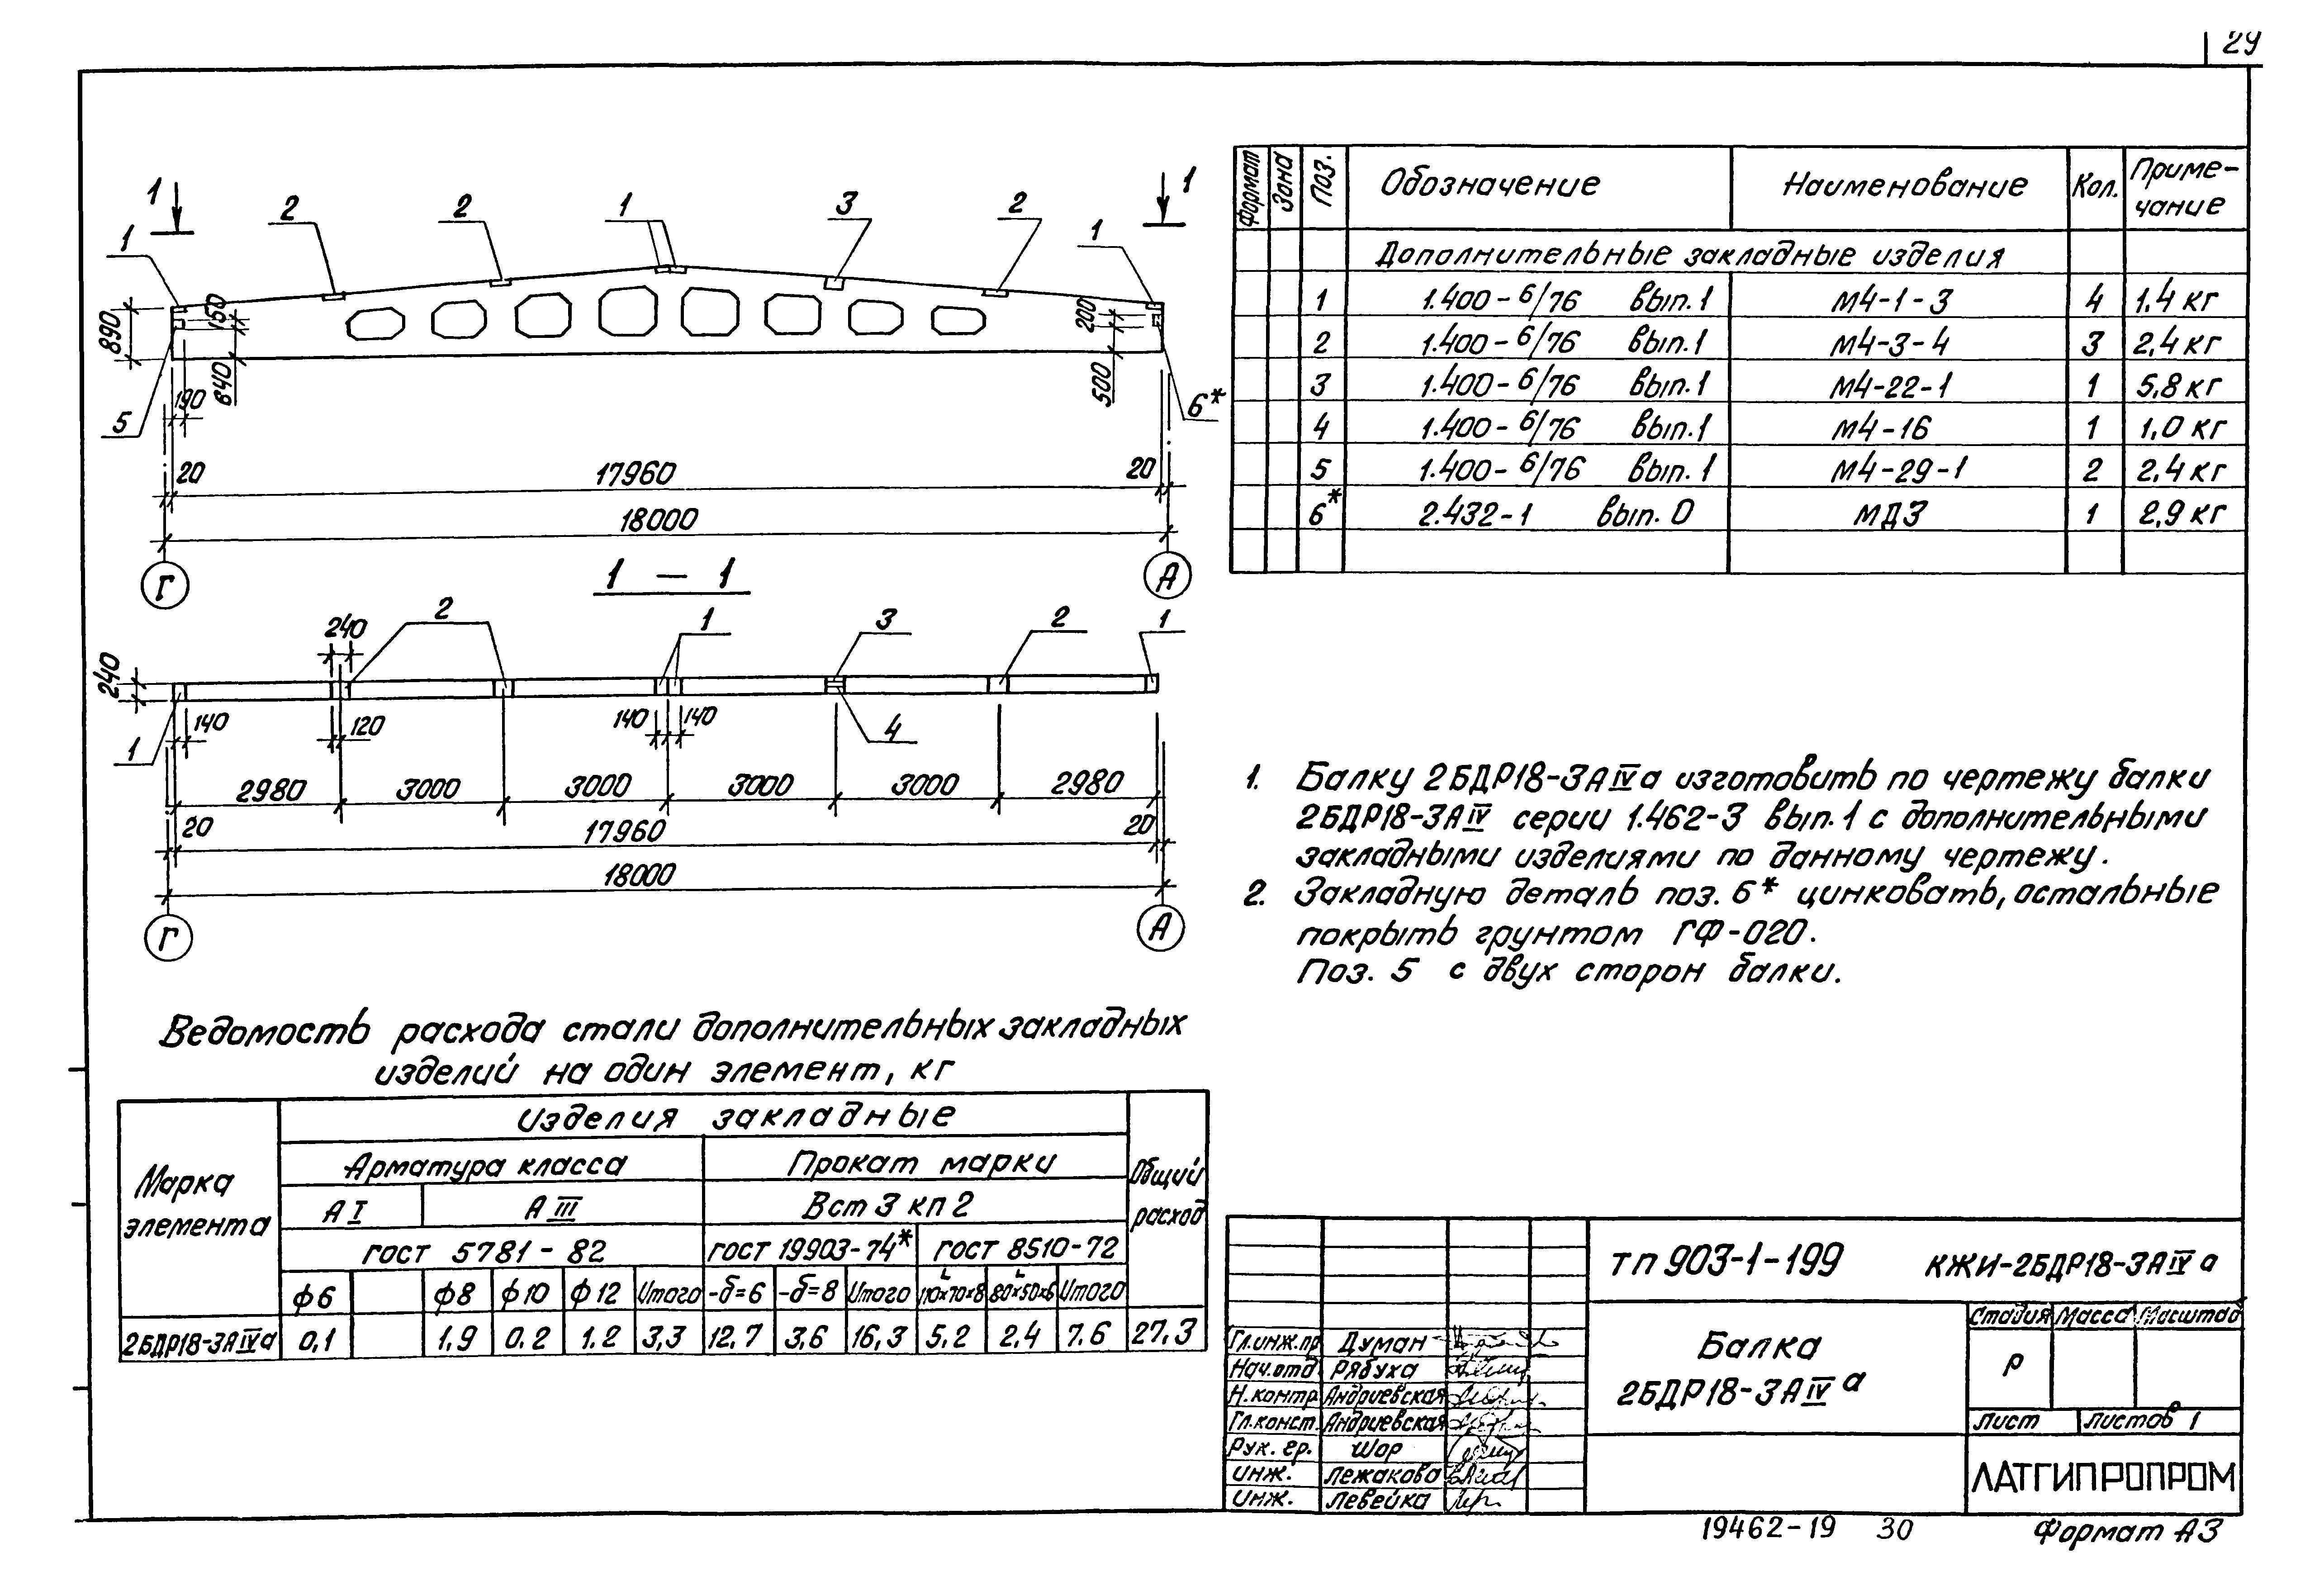 29
1
1
1
2
2
1
3
2
1
890
150
840
190
5
200
500
6*
20
17960
20
18000
Г
А
1 — 1
240
240
2
1
3
2
1
1
140
120
140
140
4
2980
3000
3000
3000
3000
2980
20
17960
20
18000
Г
А
Формат
Зона
Поз.
Обозначение
Наименование
Кол.
Приме-
чание
Дополнительные закладные изделия
1 1.400-6/76 вып.1 М4-1-3 4 1,4 кг
2 1.400-6/76 вып.1 М4-3-4 3 2,4 кг
3 1.400-6/76 вып.1 М4-22-1 1 5,8 кг
4 1.400-6/76 вып.1 М4-16 1 1,0 кг
5 1.400-6/76 вып.1 М4-29-1 2 2,4 кг
6* 2.432-1 вып. 0 МД3 1 2,9 кг
1. Балку 2БДР18-3АIVа изготовить по чертежу балки
2БДР18-3АIV серии 1.462-3 вып.1 с дополнительными
закладными изделиями по данному чертежу.
2. Закладную деталь поз. 6* цинковать, остальные
покрыть грунтом ГФ-020.
Поз. 5 с двух сторон балки.
Ведомость расхода стали дополнительных закладных
изделий на один элемент, кг
Марка
элемента
Изделия закладные
Общий
расход
Арматура класса
Прокат марки
АI
АIII
Вст 3 кп 2
ГОСТ 5781-82
ГОСТ 19903-74*
ГОСТ 8510-72
ф6 ф8 ф10 ф12 Итого -δ=6 -δ=8 Итого L110×70×8 L80×50×6 Итого
2БДР18-3АIVа 0,1 1,9 0,2 1,2 3,3 12,7 3,6 16,3 5,2 2,4 7,6 27,3
ТП 903-1-199 КЖИ-2БДР18-3АIVа
Балка
2БДР18-3АIVа
Стадия Масса Масштаб
Р
Лист Листов 1
ЛАТГИПРОПРОМ
Гл.инж.пр Думан
Нач.отд. Рябуха
Н.контр. Андриевская
Гл.конст. Андриевская
Рук. гр. Шор
Инж. Лежакова
Инж. Левейка
19462-19 30
Формат А3